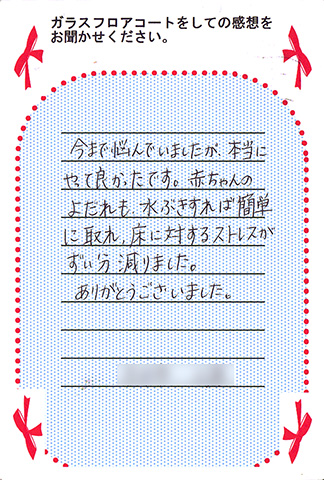 ガラスフロアコートをしての感想を
お聞かせください。
今まで悩んでいましたが、本当に
やって良かったです。赤ちゃんの
よだれも、水ぶきすれば簡単
に取れ、床に対するストレスが
ずい分減りました。
ありがとうございました。